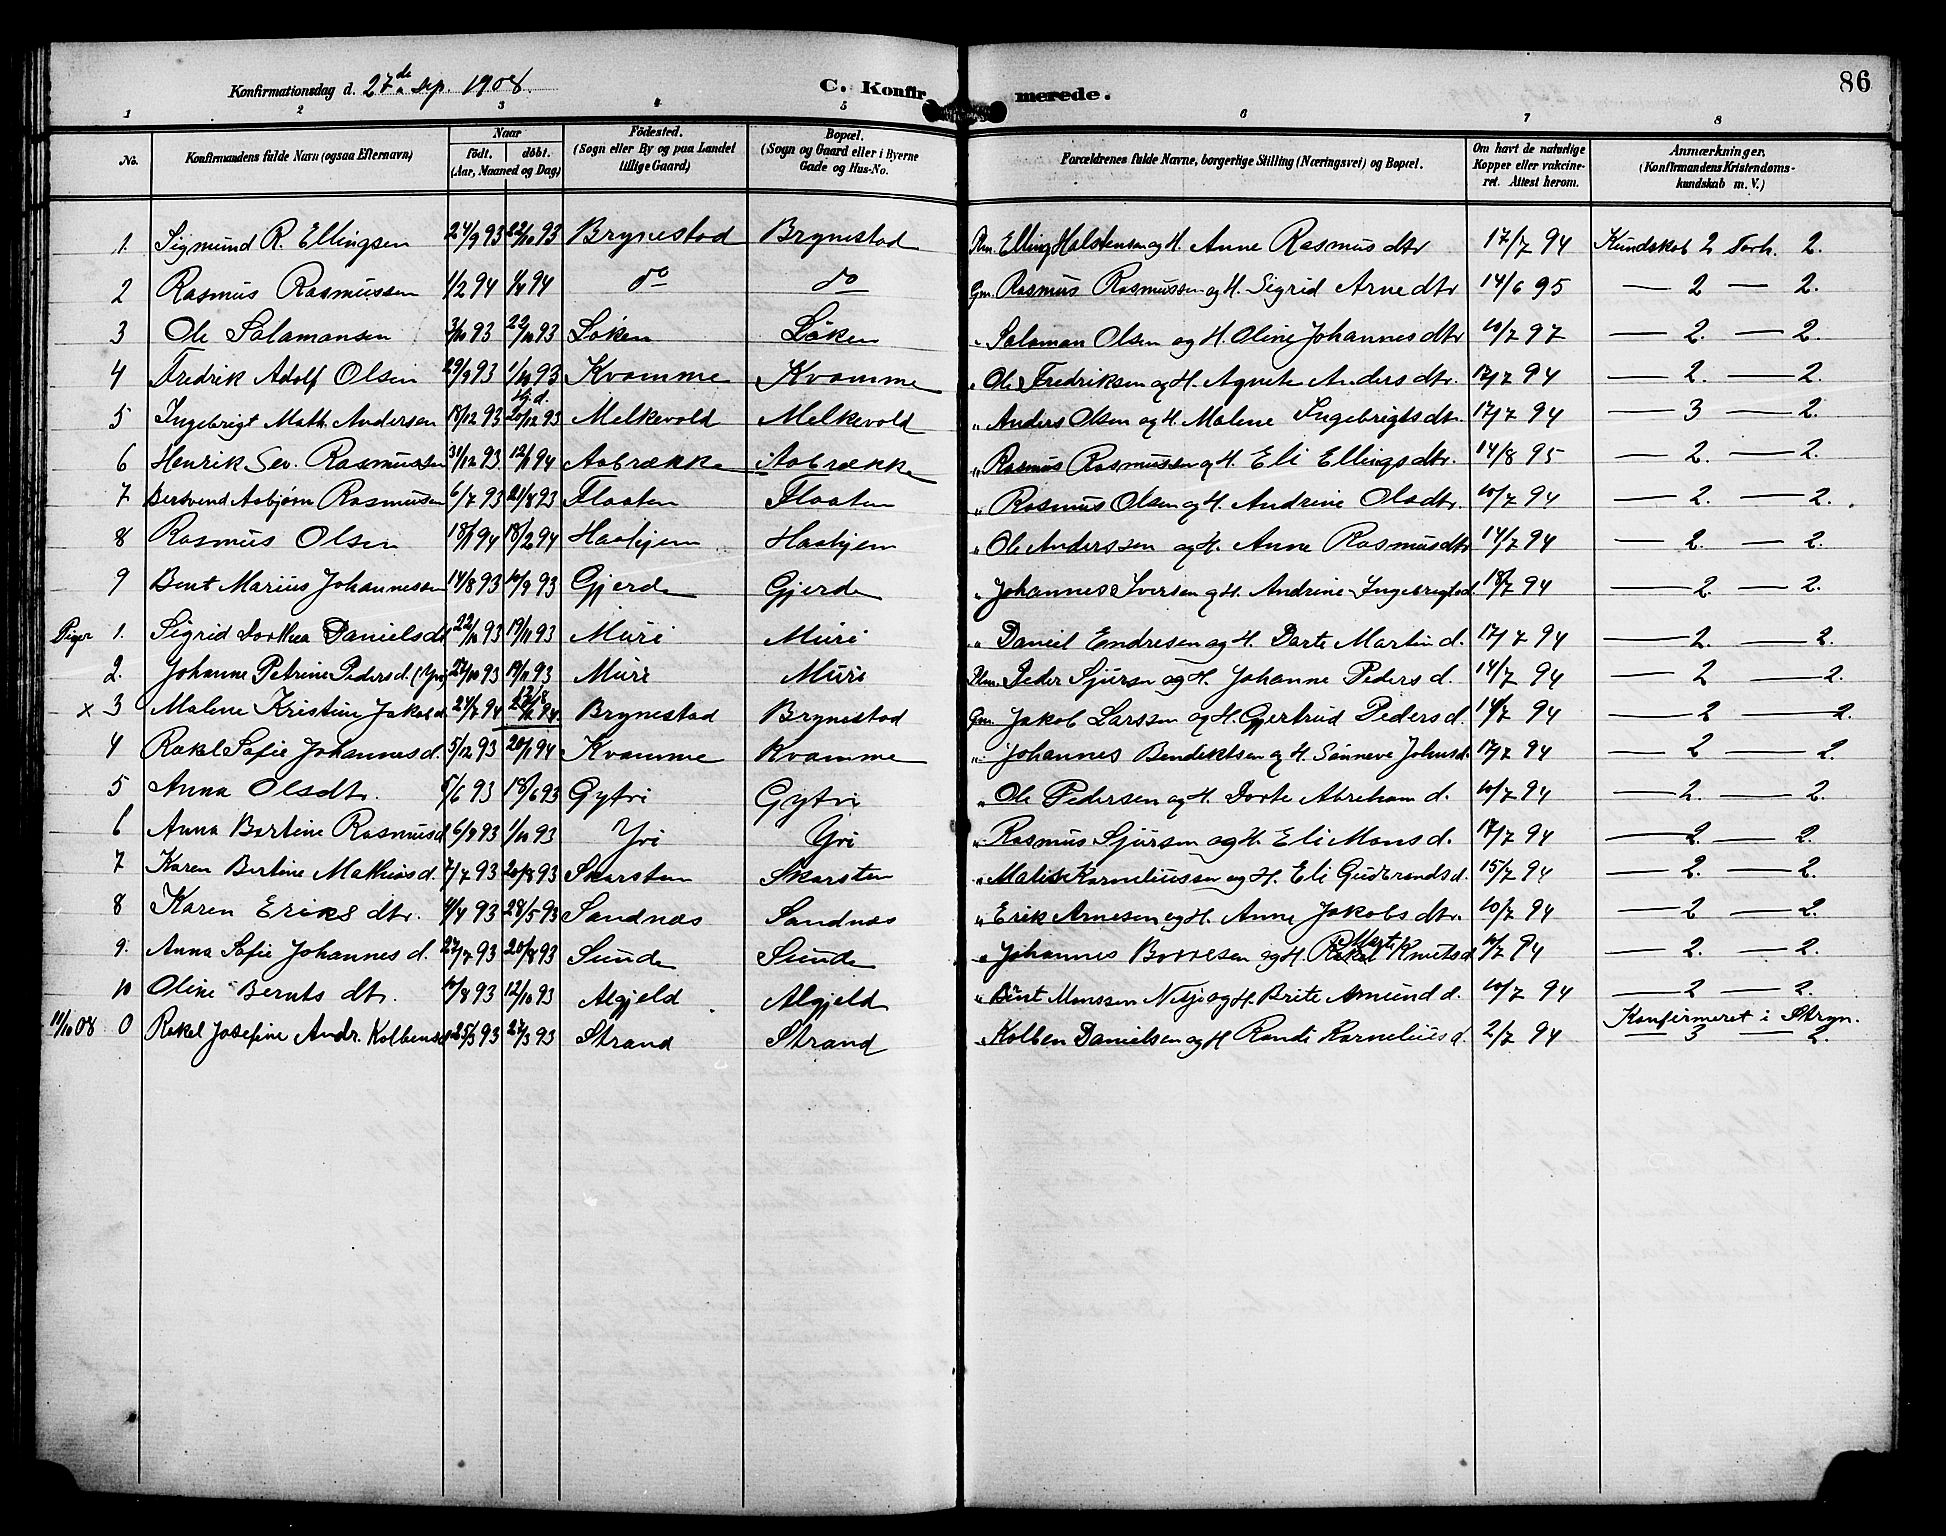 86
Konfirmationsdag d. 27de Sep. 1908.
C. Konfirmerede.
1 2 3 4 5 6 7 8
No. Konfirmandens fulde Navn (ogsaa Efternavn) Naar födt. döbt. (Aar, Maaned og Dag) Födested. (Sogn eller By og paa Landet tillige Gaard) Bopæl. (Sogn og Gaard eller i Byerne Gade og Hus-No. Forældrenes fulde Navne, borgerlige Stilling (Næringsvei) og Bopæl. Om havt de naturlige Kopper eller vakcineret. Attest herom. Anmærkninger. (Konfirmandens Kristendomskundskab m. V.)
1. Sigmund R. Ellingsen 24/9 93 22/10 93 Brynestad Brynestad Elling Halstensen og H. Anne Rasmusdtr 17/7 94 Kundskab 2 Forh. 2.
2 Rasmus Rasmussen 1/2 94 1/4 94 do do Gm. Rasmus Rasmussen og H. Sigrid Arnedtr 14/6 95 — 2 — 2.
3 Ole Salamonsen 3/10 93 22/10 93 Löken Löken " Salamon Olsen og H. Oline Johannesdtr 10/7 97 — 2. — 2.
4 Fredrik Adolf Olsen 29/9 93 1/10 93 Kvamme Kvamme " Ole Fredriksen og H. Agnete Andersdtr. 17/7 94 — 2. — 2.
5 Ingebrigt Math. Andersen 18/12 93 hj.d. 20/12 93 Melkevold Melkevold " Anders Olsen og H. Malene Ingebrigtsdtr. 17/7 94 — 3 — 2.
6 Henrik Sev. Rasmussen 31/12 93 12/1 94 Aabrække Aabrække " Rasmus Rasmussen og H. Eli Ellingsdtr. 14/8 95 — 2. — 2.
7 Bersvend Asbjørn Rasmussen 6/7 93 21/8 93 Flaaten Flaaten " Rasmus Olsen og H. Andrine Olsdtr. 10/7 94 — 2. — 2.
8 Rasmus Olsen 18/1 94 18/2 94 Haahjem Haahjem " Ole Anderssen og H. Anne Rasmusdtr 14/7 94 — 2. — 2.
9 Bent Marius Johannessen 14/8 93 10/9 93 Gjerde Gjerde " Johannes Iversen og H. Andrine Ingebrigtsd. 18/7 94 — 2. — 2.
Piger 1. Sigrid Dorthea Danielsdt 22/10 93 19/11 93 Muri Muri " Daniel Endresen og H. Dorte Martin d. 17/7 94 — 2. — 2.
2. Johanne Petrine Pedersd. (Yri) 27/10 93 19/11 93 Muri Muri Peder Sjursen og H. Johanne Peders d. 14/7 94 — 2 — 2.
x 3 Malene Kristine Jakobd. 24/7 94 12/8 94 Brynestad Brynestad Gm. Jakob Larssen og H. Gjertrud Peders d. 14/7 94 — 2 — 2.
4 Rakel Sofie Johannesd. 5/12 93 20/1 94 Kvamme Kvamme " Johannes Bendiktsen og H. Sønneve Johnsd. 17/7 94 — 2 — 2.
5 Anna Olsdtr. 5/6 93 18/6 93 Gytri Gytri " Ole Pedersen og H. Dorte Abraham d. 10/7 94 — 2. — 2.
6 Anna Bertine Rasmusd. 6/9 93 1/10 93 Yri Yri " Rasmus Sjursen og H. Eli Mons d. 17/7 94 — 2. — 2.
7 Karen Bertine Mathiasd. 7/7 93 20/8 93 Skarsten Skarsten " Matis Korneliussen og H. Eli Gudbrands d. 15/7 94 — 2. — 2.
8 Karen Eriks dtr. 4/4 93 28/5 93 Sandnæs Sandnæs " Erik Arnesen og H. Anne Jakobsdtr. 10/7 94 — 2 — 2.
9. Anna Sofie Johannes d. 27/7 93 20/8 93 Sunde Sunde " Johannes Borresen og H. Marte Knuts d. 10/7 94 — 2. — 2.
10 Oline Bernts dtr. 10/8 93 12/10 93 Algjeld Algjeld " Bent Monssen Nesje og H. Brite Amund d. 10/7 94 — 2 — 2.
11/10 08 0 Rakel Josefine Andr. Kolbensd 25/3 93 27/3 93 Strand Strand " Kolben Danielsen og H Randi Kornelius d. 2/7 94 Konfirmeret i Stryn. — 3 — 2.